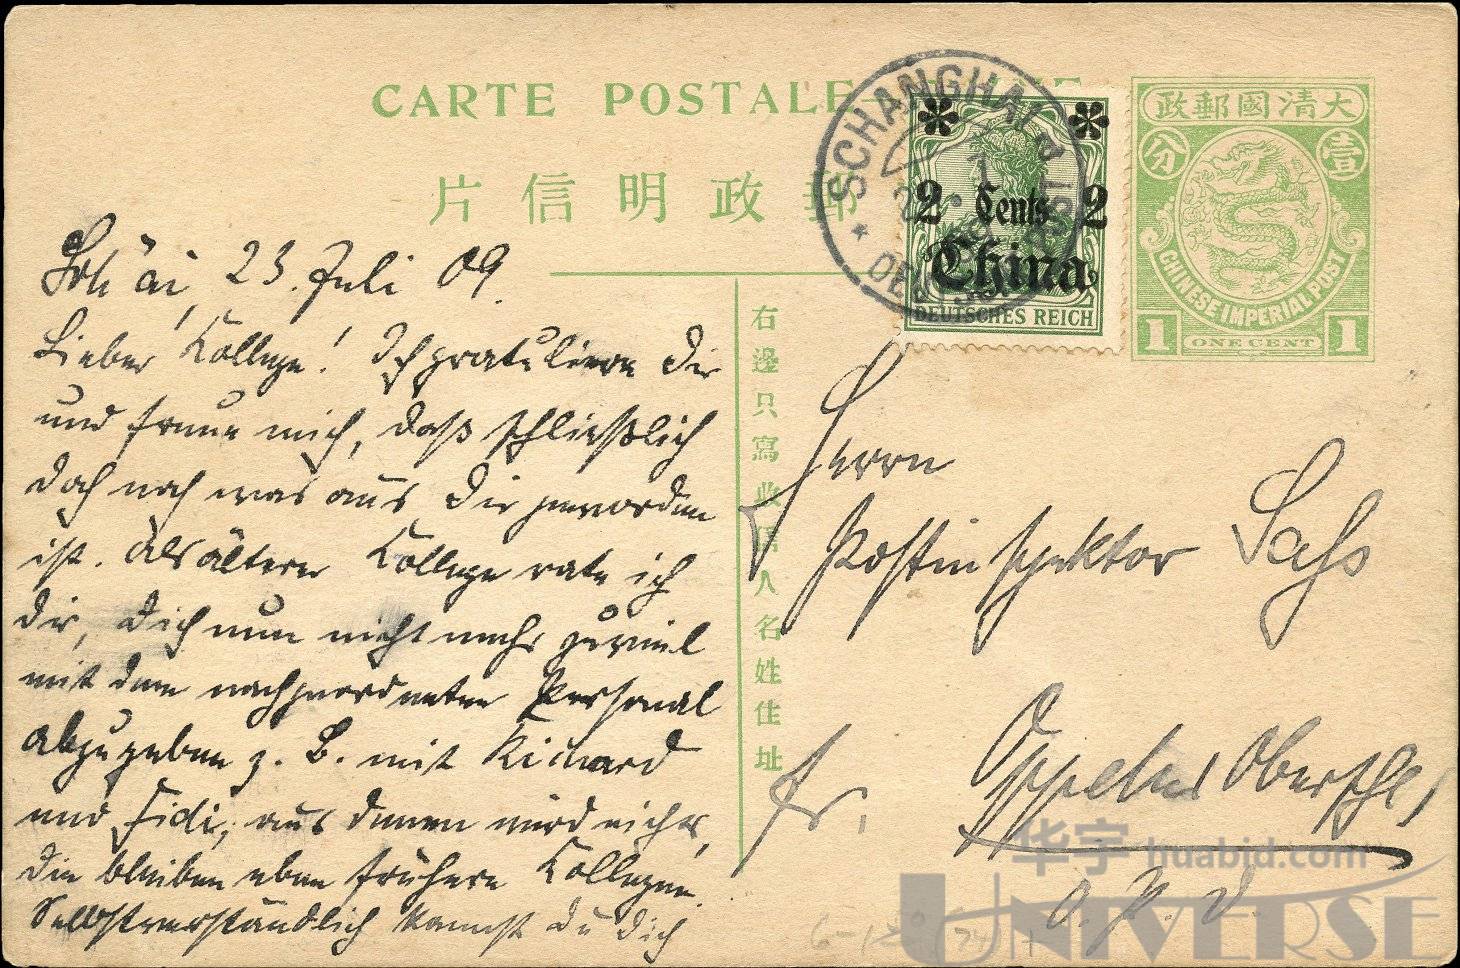 CARTE POSTALE
片信明政郵
大清國郵政
壹分
CHINESE IMPERIAL POST
1 ONE CENT 1
SCHANGHAI
DEUTSCHE POST
2 Cents 2
China
DEUTSCHES REICH
右邊只寫收信人名姓住址
Sch'ai, 23. Juli 09.
Lieber Kollege! Ich gratuliere Dir
und freue mich, daß schließlich
doch noch was aus Dir geworden
ist. Als älterer Kollege rate ich
Dir, Dich nun nicht mehr zuviel
mit dem nachgeordneten Personal
abzugeben z. B. mit Richard
und Fidi, aus denen wird nichts,
die bleiben eben frühere Kollegen.
Selbstverständlich kannst Du Dich
Herrn
Postinspektor Sass
fr.
Oppeln, Oberschl.,
O. P. D.
华宇 huabid.com
UNIVERSE